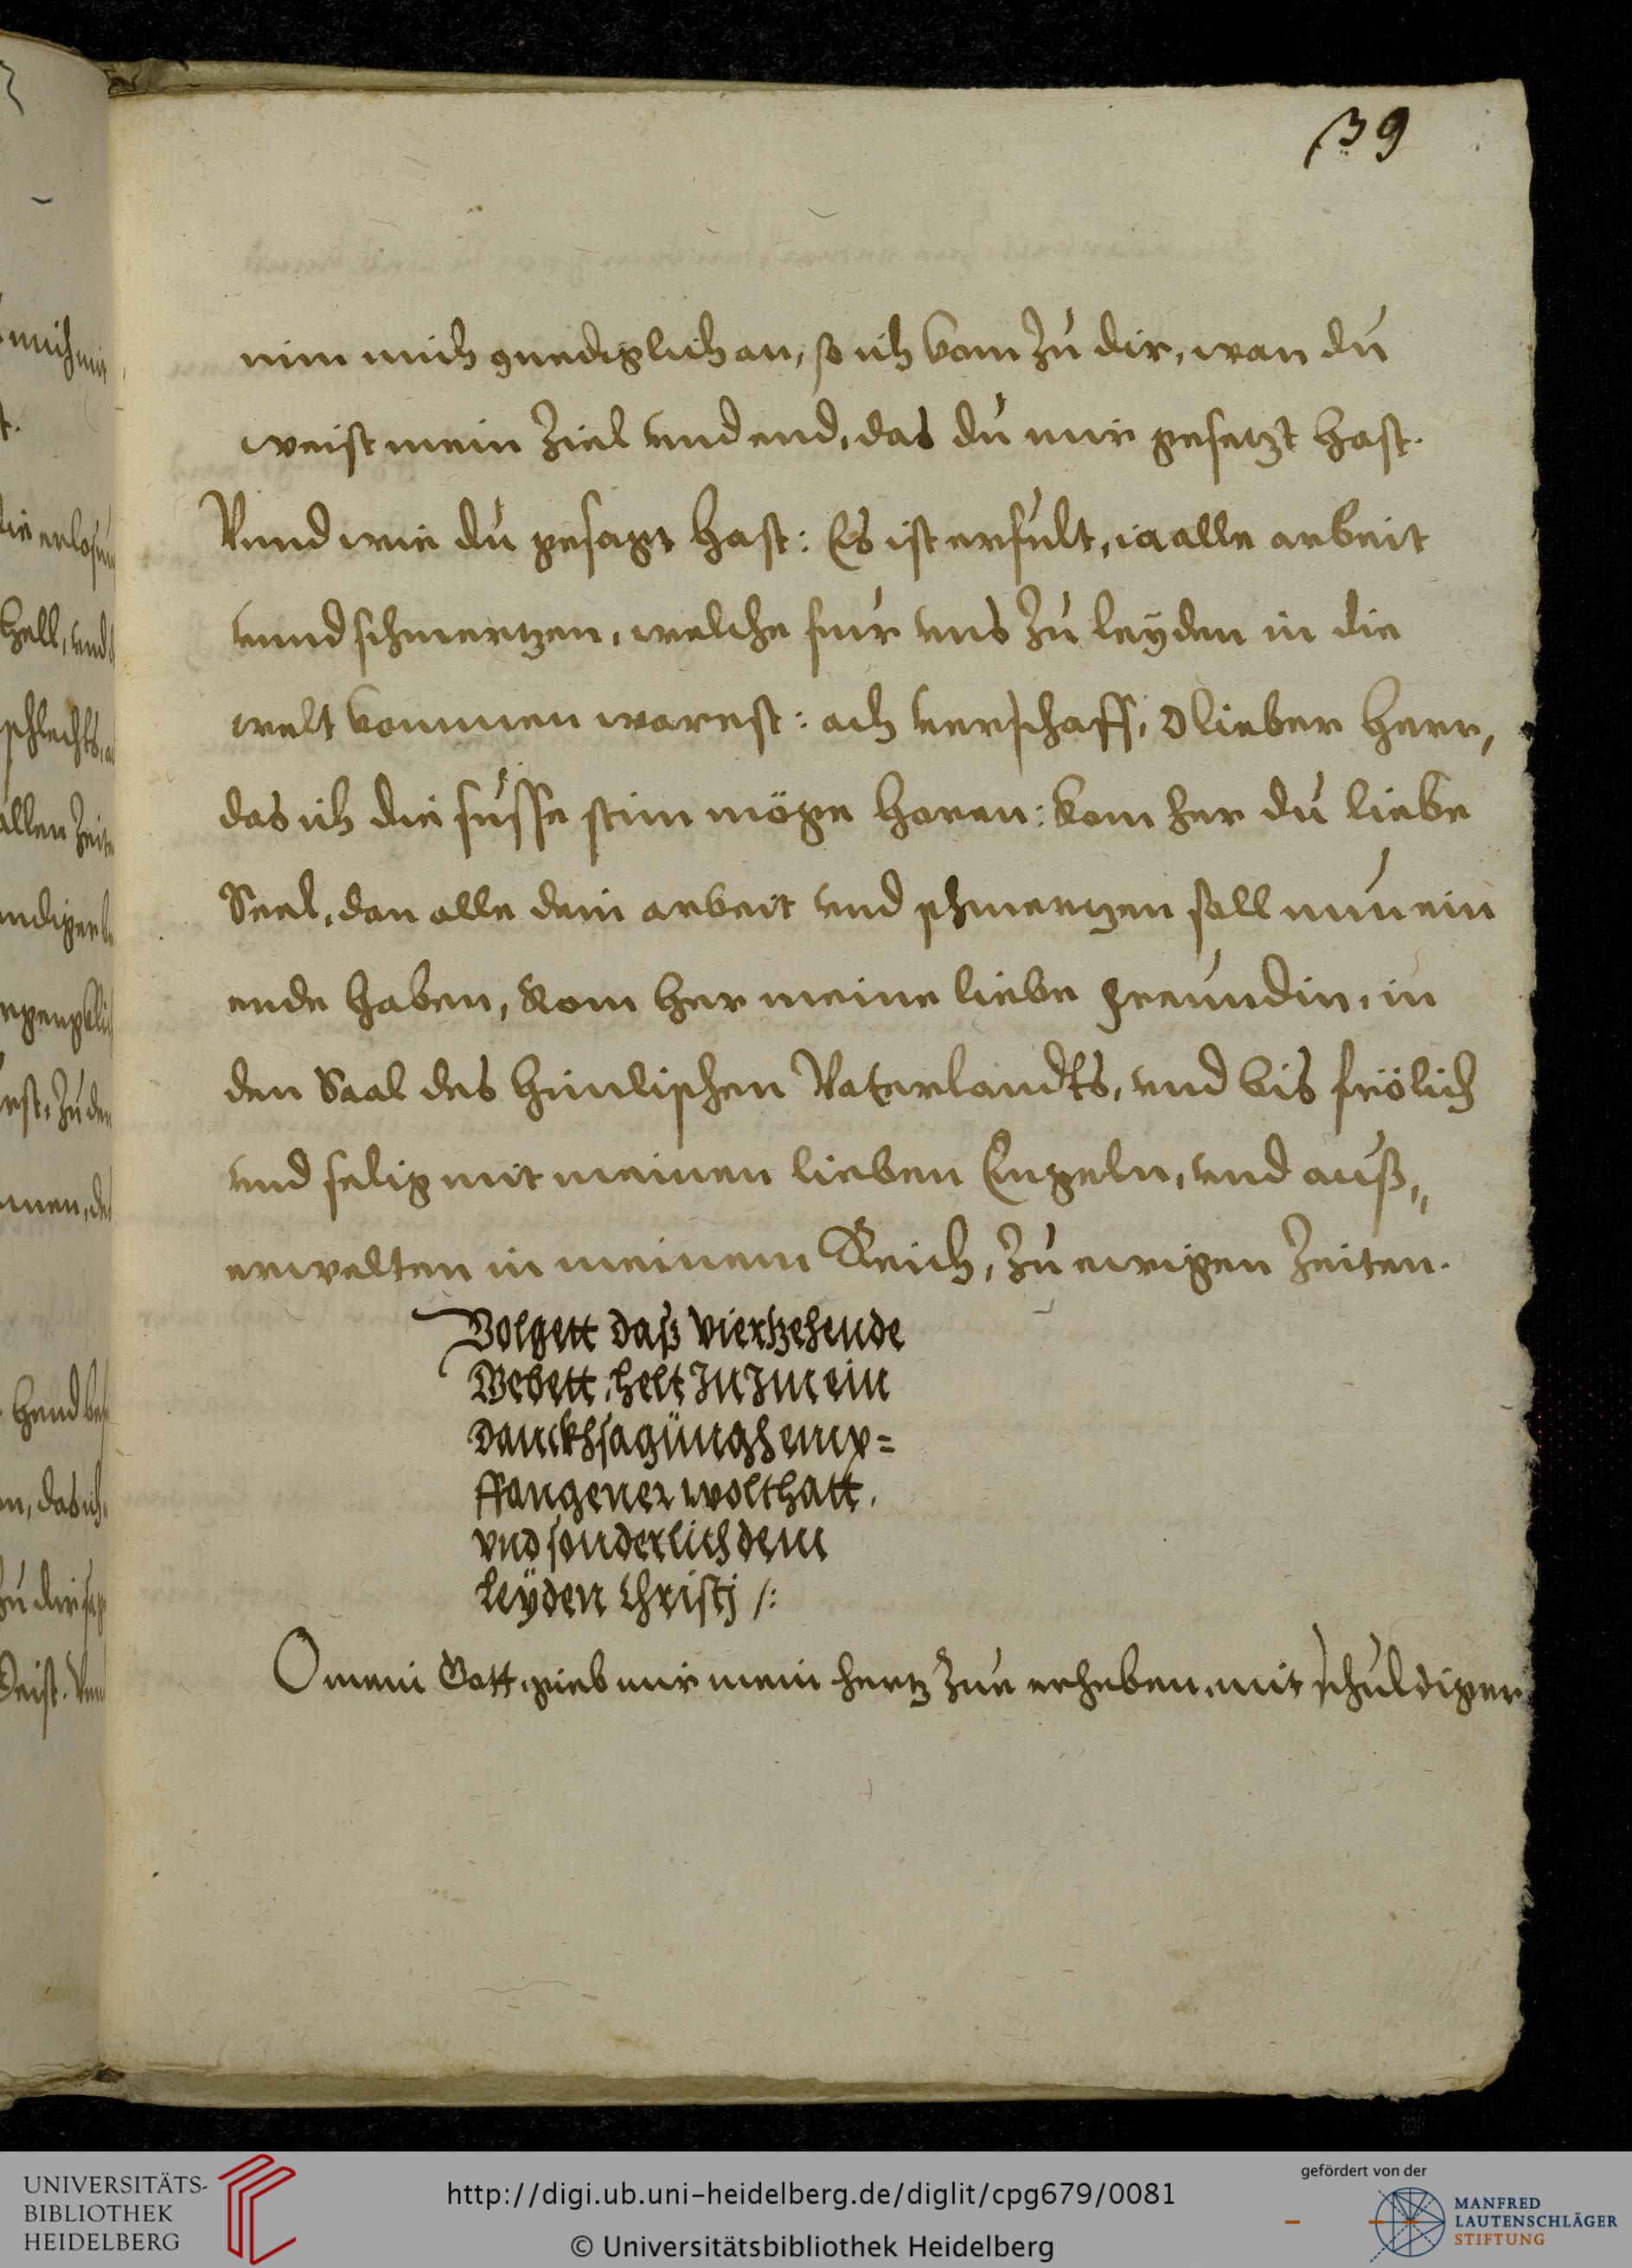 39
nim mich gnediglich an, so ich kom zu dir, wan du
weist mein Ziel vnd end, das du mir gesetzt hast.
Vnnd wie du gesagt hast: Es ist erfult, ia alle arbeit
vnnd schmertzen, welche fur vns zu leyden in die
welt kommen warest: ach verschaff, O lieber Herr,
das ich die süsse stim möge horen: kom her du liebe
Seel, dan alle dein arbeit vnd schmertzen soll nun ein
ende haben, kom her meine liebe freundin, in
den Saal des himlischen Vaterlandts, vnd bis frölich
vnd selig mit meinen lieben Engeln, vnd auß,,
erwelten in meinem Reich, zu ewigen Zeiten.
Volgett daß viertzehende
Gebett, helt in Im ein
Danckhsagüngh emp=
ffangener wolthatt,
vnd sonderlich dem
leÿden Christj /:
O mein Gott, gieb mir mein hertz zue erheben, mit schuldiger
UNIVERSITÄTS-
BIBLIOTHEK
HEIDELBERG
http://digi.ub.uni-heidelberg.de/diglit/cpg679/0081
© Universitätsbibliothek Heidelberg
gefördert von der
MANFRED
LAUTENSCHLÄGER
STIFTUNG